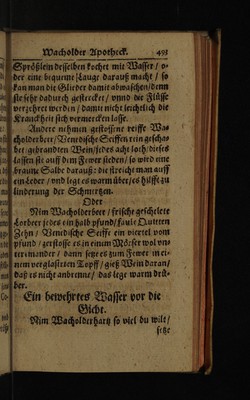 Wacholder Apotheck. 493
Sprößlein deselben kochet mit Wasser / o-
der eine biqueme Lauge darauß macht / so
kan man die Glieder damit abwaschen / denn
sie sehr dadurch gestercket / vnnd die Flüsse
verzehret werden / damit nicht leichtlich die
Kranckheit sich vermercken lasse.
Andere nehmen gestossene reiffe Wa-
choldernbeer / Venedische Seiffen rein gescha-
bet / gebrandten Wein / jedes acht loth / dieses
lassen sie auff dem Fewer sieden / so wird eine
braune Salbe darauß: die streicht man auff
ein Leder / vnd legt es warm vber / es hilfft zu
linderung der Schmertzen.
Oder
Nim Wacholderbeer / frische gescheelete
Lorbeer / jedes ein halb pfund / faule Quitten
Zehn / Venedische Seiffe ein viertel vom
pfund / gerstosse es in einem Mörser wol vn-
tereinander / dann setze es zum Fewer in ei-
nem verglasirten Topff / gieß Wein daran /
daß es nicht anbrenne / das lege warm drü-
ber.
Ein bewehrtes Wasser vor die
Gicht.
Nim Wacholderhartz so viel du wilt /
setze